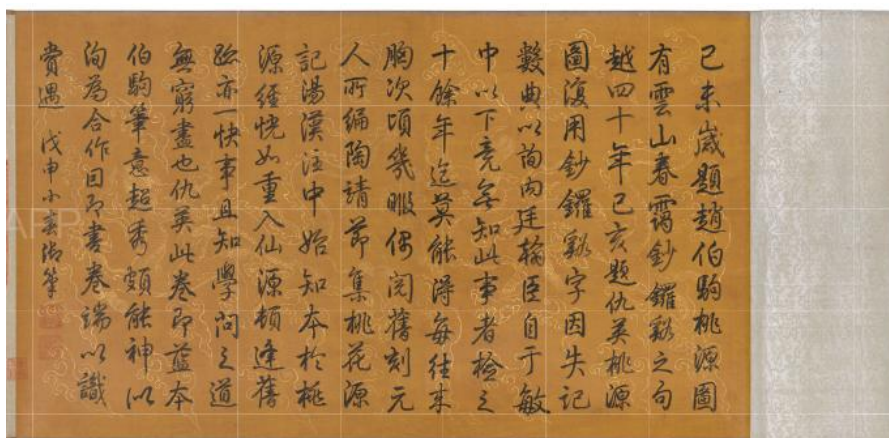 己未歲題趙伯駒桃源圖
有雲山春靄鈔鑼谿之句
越四十年己亥題仇英桃源
圖復用鈔鑼谿字因失記
數典以詢內廷翰臣自于敏
中以下竟無知此事者檢之
十餘年迄莫能得每往來
胸次頃幾暇偶閱舊刻元
人所編陶靖節集桃花源
記湯漢注中始知本於桃
源經恍如重入仙源頓逢舊
跡亦一快事且知學問之道
無窮盡也仇英此卷即藍本
伯駒筆意超秀頗能神似
洵為合作因即書卷端以識
賞遇 戊申小春御筆
APP